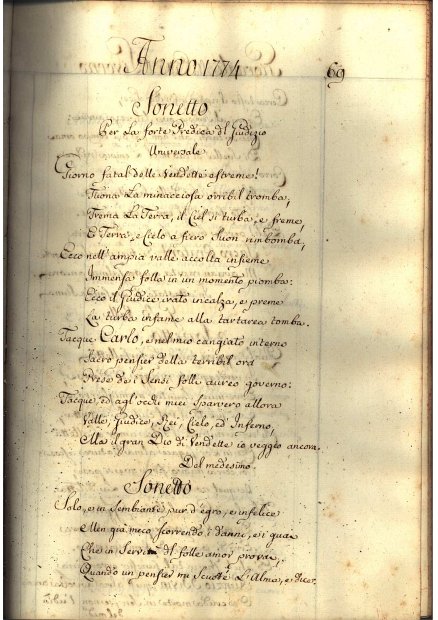 Anno 1774
69
Sonetto
Per la forte Predica dl Giudizio
Universale
Giorno fatal delle Vendette estreme!
Tuona la minacciosa orribil tromba,
Trema la Terra, il Ciel si turba, e freme
E Terra, e Cielo a fiero suon rimbomba,
Ecco nell'ampia valle accolta insieme
Immensa folla in un momento piomba:
Ecco il Giudice irato incalza, e preme
La turba infame alla tartarea tomba.
Tacque Carlo, e nel mio cangiato interno
Sacro pensier della terribil ora
Prese de i Sensi folli aureo governo:
Tacque, ed agl'occhi miei sparvero allora
Valle, Giudice, Rei, Cielo, ed Inferno,
Ma il gran Dio di Vendette io veggio ancora.
Del medesimo
Sonetto
Solo, e in Sembiante pur d'egro, e infelice
Men già meco scorrendo i danni, e i guai
Che in Servitù dl folle amor provai,
Quando un pensier mi Scuote L'Alma, e dice: